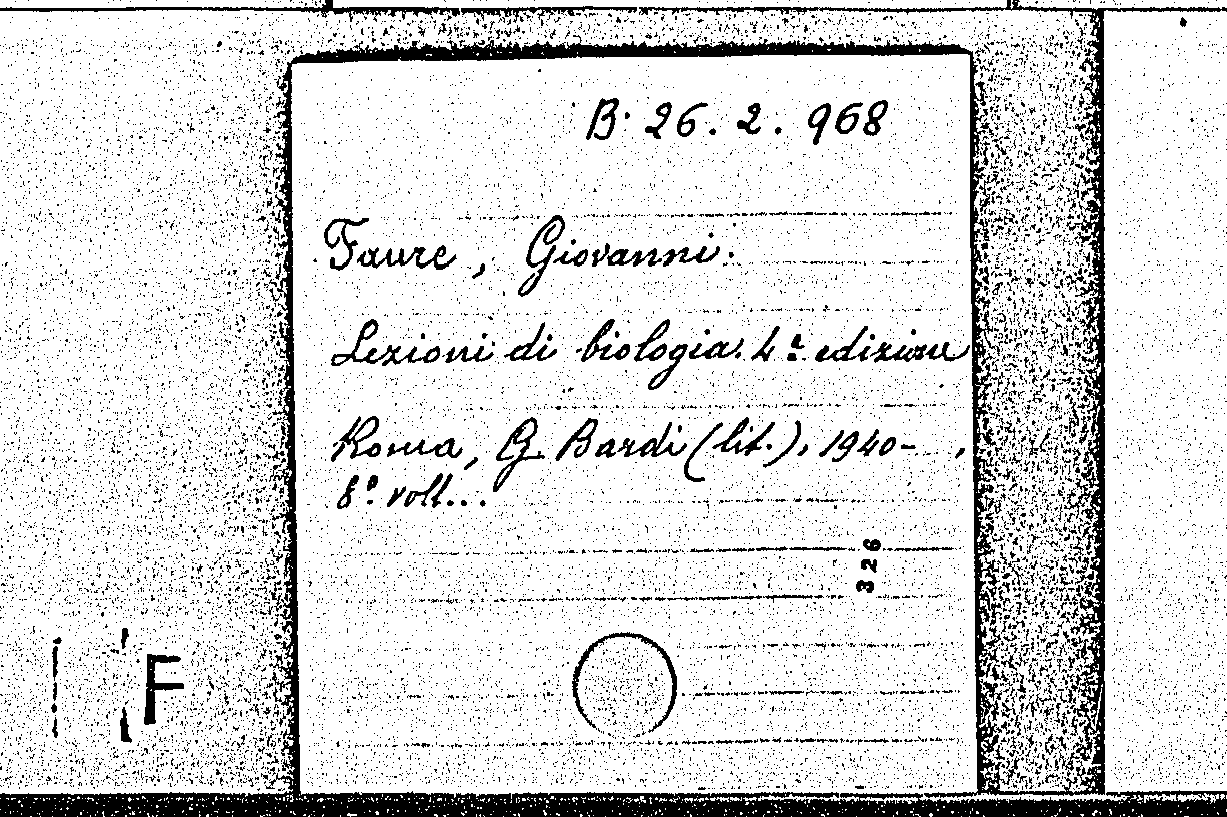 B. 26. 2. 968
Faure, Giovanni.
Lezioni di biologia. 4ª edizione
Roma, G. Bardi (lit.), 1940- ,
8º. voll...
326
F